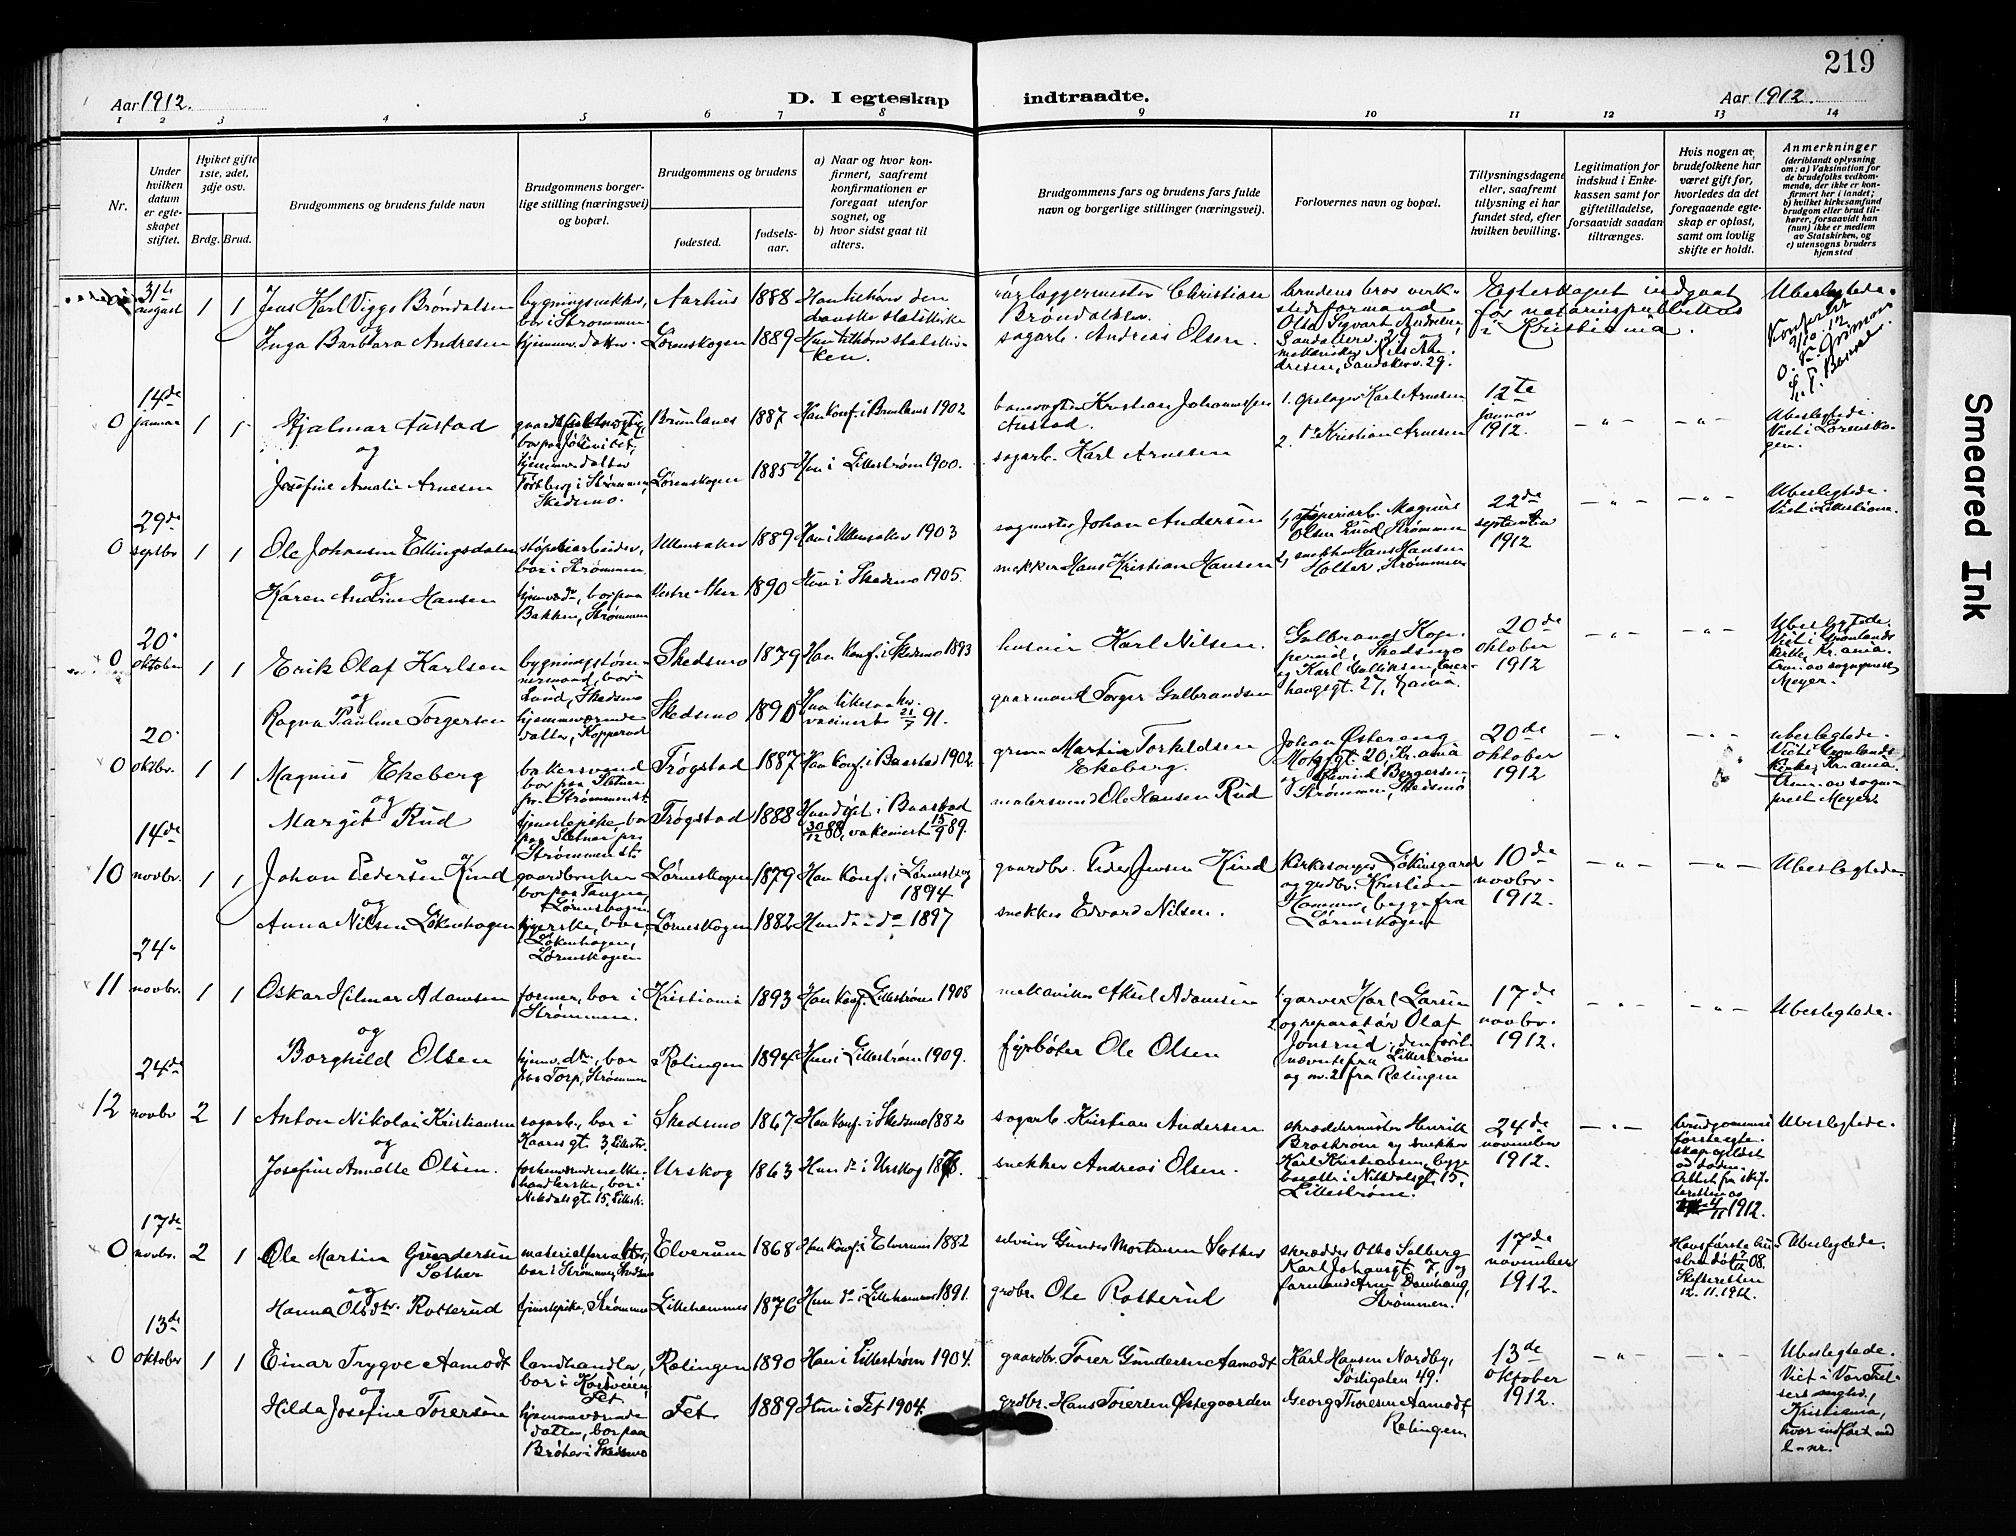 219
Aar 1912.
D. I egteskap indtraadte.
Aar 1912.
1 2 3 4 5 6 7 8 9 10 11 12 13 14
Nr.
Under hvilken datum er egteskapet stiftet.
Hvilket gifte 1ste, 2det, 3dje osv.
Brdg. Brud.
Brudgommens og brudens fulde navn
Brudgommens borgerlige stilling (næringsvei) og bopæl.
Brudgommens og brudens
fødested.
fødselsaar.
a) Naar og hvor konfirmert, saafremt konfirmationen er foregaat utenfor sognet, og
b) hvor sidst gaat til alters.
Brudgommens fars og brudens fars fulde navn og borgerlige stillinger (næringsvei).
Forlovernes navn og bopæl.
Tillysningsdagene eller, saafremt tillysning ei har fundet sted, efter hvilken bevilling.
Legitimation for indskud i Enkekassen samt for giftetilladelse, forsaavidt saadan tiltrænges.
Hvis nogen av brudefolkene har været gift før, hvorledes da det foregaaende egteskap er opløst, samt om lovlig skifte er holdt.
Anmerkninger
(deriblandt oplysning om: a) Vaksination for de brudefolks vedkommende, der ikke er konfirmert her i landet;
b) hvilket kirkesamfund brudgom eller brud tilhører, forsaavidt han (hun) ikke er medlem av Statskirken, og
c) utensogns bruders hjemsted
31te august 1 1 Jens Karl Viggo Brøndalsen bygningssnekker, bor i Strømmen Aarhus 1888 Han tilhører den danske statskirke
rørlæggermester Christian Brøndalsen brudens bror verkstedformand Egteskapet indgaat for notarius publicus i Kristiania. Ubeslegtede.
og
Inga Barbara Andresen hjemmev. datter Lørenskogen 1889 Hun tilhører statskirken.
sagarb. Andreas Olsen.
14de
0 januar 1 1 Hjalmar Austad Brunlanes 1887 Han konf. i Brunlanes 1902
banevogter Kristian Johannessen Austad. 1. Karl Arnesen 12te januar 1912. Ubeslegtede. Viet i Lørenskogen.
og
Josefine Amalie Arnesen hjemmev. datter i Strømmen, Skedsmo. Lørenskogen 1885 Hun i Lillestrøm 1900.
sagarb. Karl Arnesen 2. do Kristian Arnesen
29de
0 septbr 1 1 Ole Johansen Ellingsdalen støperiarbeider, bor i Strømmen Ullensaker 1889 Han i Ullensaker 1903
sagmester Johan Andersen 1, støperiarb. Magnus Olsen Lund, Strømmen 22de september 1912 Ubeslegtede. Viet i Lillestrøm.
og
Karen Andrine Hansen hjemv. dr, bor paa Bakken, Strømmen Vestre Aker 1890 Hun i Skedsmo 1905.
snekker Hans Kristian Hansen 2, snekker Hans Hansen Holter, Strømmen
20.
0 oktober 1 1 Erik Olaf Karlsen bygningstømmermand, bor Lund, Skedsmo Skedsmo 1879 Han konf. i Skedsmo 1893
huseier Karl Nilsen. Gulbrand Kopperud, Skedsmo 20de oktober 1912 Ubeslegtede. Viet i Grønlands kirke, Kr.ania av sogneprest Meyer.
og
Ragna Pauline Torgersen hjemmeværende datter, Kopperud Skedsmo 1890 vaksinert 21/7 91.
gaardmand Torger Gulbrandsen
20.
0 oktbr. 1 1 Magnus Ekeberg bakersvend bor paa Stetner pr. Strømmen st. Trøgstad 1887 Han konf. i Baastad 1902.
Martin Torkildsen Ekeberg. Johan Østereng Motzfgt 20, Kr.ania 20de oktober 1912 ubeslegtede. Viet i Grønlands kirke, Kr.ania. av sogneprest Meyer
og
Margit Rud tjenestepike, bor paa Stetner pr. Strømmen st. Trøgstad 1888 Hun døpt i Baastad 30/12 88, vaksinert 15/9 89.
malersvend Ole Hansen Rud Bergersen, Strømmen, Skedsmo
14de
10 novbr. 1 1 Johan Pedersen Kind gaardbruker bor paa Tangen Lørenskogen Lørenskogen 1879 Han konf. i Lørenskog 1894
gaardbr. Peder Jensen Kind kirkesanger Løkensgard og grdbr. Kristian Hammer, begge fra Lørenskogen 10de novbr. 1912. Ubeslegtede
og
Anna Nilsen Løkenhagen syerske, bor Løkenhagen, Lørenskogen Lørenskogen 1882 Hun do do 1897
snekker Edvard Nilsen.
24de
11 novbr. 1 1 Oskar Hilmar Adamsen former, bor i Strømmen. Kristiania 1893 Han konf. Lillestrøm 1908
mekaniker Aksel Adamsen 1. garver Karl Larsen 2. og reparatør Olaf Jonsrud, den førstnævnte fra Lillestrøm og nr. 2 fra Rælingen 17de novbr. 1912. Ubeslegtede.
og
Borghild Olsen hjemv. dr. bor paa Torp, Strømmen Rælingen 1894 Hun i Lillestrøm 1909.
fyrbøter Ole Olsen
24de
12 novbr 2 1 Anton Nikolai Kristiansen sagarb., bor i Kaares gt 3, Lillestr. Skedsmo 1867 Han konf. i Skedsmo 1882
sagarb. Kristian Andersen skræddermester Henrik Brostrøm og snekker Karl Kristiansen, begge bosatte i Nitedalsgt. 15, Lillestrøm. 24de november 1912. brudgommens første egteskap opløst ved døden. Attest fra skifteretten av 1912. Ubeslegtede.
og
Josefine Annette Olsen. bor i Nitedalsgt 15, Lillestr. Urskog 1863 Hun do i Urskog 1878.
snekker Andreas Olsen.
17de
0 novbr. 2 1 Ole Martin Gundersen Sæther materialforvalter, bor i Strømmen, Skedsmo Elverum 1868 Han konf. i Elverum 1882
selveier Gunder Mortensen Sæther skrædder Otto Solberg Karl Johansgt 7, og formand Arne Damhaug, Strømmen. 17de november 1912. Hans første hustru døde 08. Skifteretten 12.11.1912. Ubeslegtede.
og
Hanna Olsdtr. Rotterud tjenestepike, Strømmen Lillehammer 1876 Hun do i Lillehammer 1891.
grdbr. Ole Rotterud
13de
0 oktober 1 1 Einar Trygve Aamodt landhandler, bor i Fet Rælingen 1890 Han i Lillestrøm 1904.
gaardbr. Torer Gundersen Aamodt Karl Hansen Nordby, Storgaten 49. 13de oktober 1912. Ubeslegtede. Viet i Vor Frelsers menighed, Kristiania, hvor indført med l-nr.
og
Hilda Josefine Torersen hjemmeværende datter, bor paa Bråten i Skedsmo Fet 1889 Hun i Fet 1904.
grdbr. Hans Toresen Østegaarden Georg Thoresen Aamodt, Rælingen
Smeared Ink